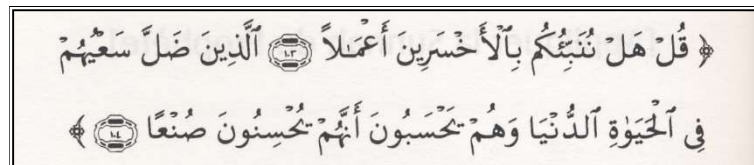 ﴿ قُلْ هَلْ نُنَبِّئُكُم بِٱلْأَخْسَرِينَ أَعْمَـٰلًا ١٠٣ ٱلَّذِينَ ضَلَّ سَعْيُهُمْ
فِى ٱلْحَيَوٰةِ ٱلدُّنْيَا وَهُمْ يَحْسَبُونَ أَنَّهُمْ يُحْسِنُونَ صُنْعًا ١٠٤ ﴾